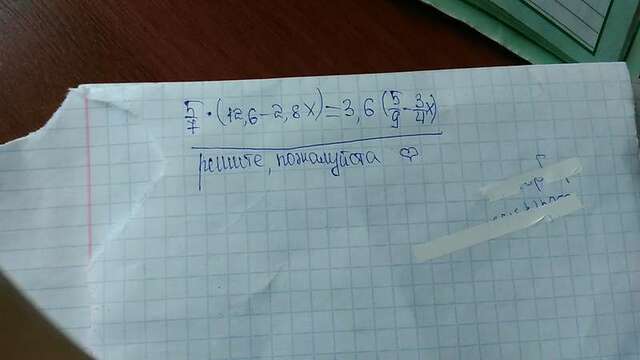 5/7 · (12,6 - 2,8x) = 3,6 (5/9 - 3/4 x)
решите, пожалуйста